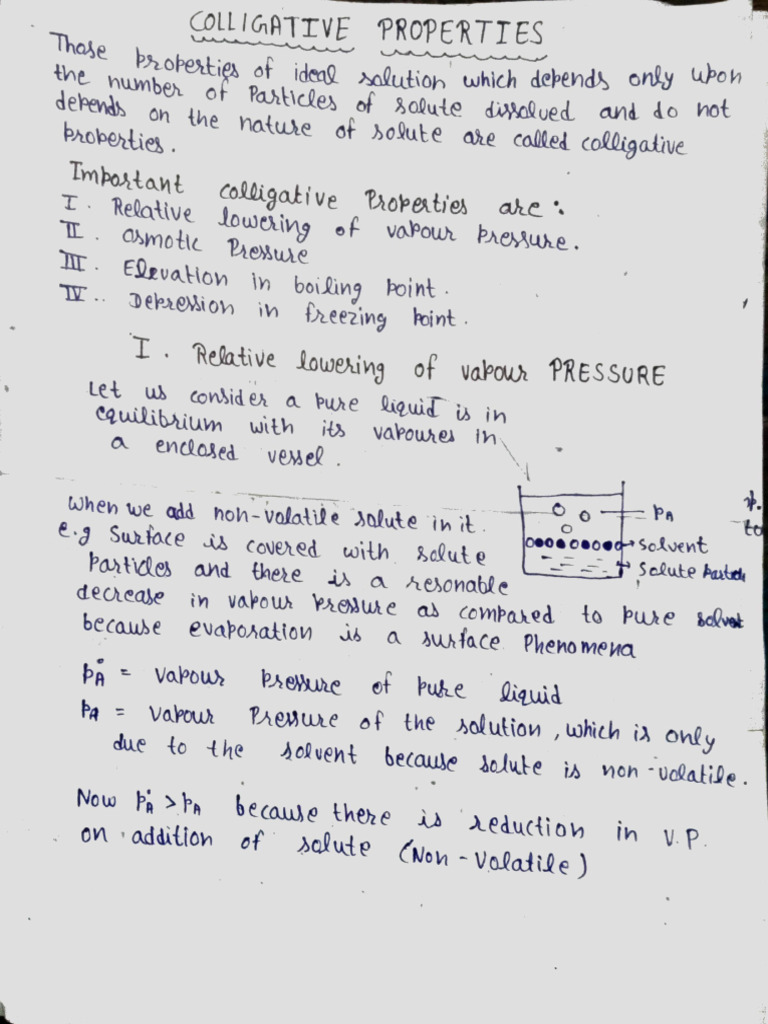 COLLIGATIVE PROPERTIES
Those properties of ideal solution which depends only upon
the number of Particles of solute dissolved and do not
depends on the nature of solute are called colligative
properties.
Important colligative Properties are :
I. Relative lowering of vapour pressure.
II. Osmotic Pressure
III. Elevation in boiling point.
IV.. Depression in freezing point.
I. Relative lowering of vapour PRESSURE
Let us consider a pure liquid is in
equilibrium with its vapoures in
a enclosed vessel.
When we add non-volatile solute in it.
e.g Surface is covered with solute
particles and there is a resonable
decrease in vapour pressure as compared to pure solvent
because evaporation is a surface Phenomena
PA
solvent
solute particle
p°A = vapour pressure of pure liquid
pA = vapour Pressure of the solution, which is only
due to the solvent because solute is non-volatile.
Now p°A > pA because there is reduction in V.P.
on addition of solute (Non-Volatile)